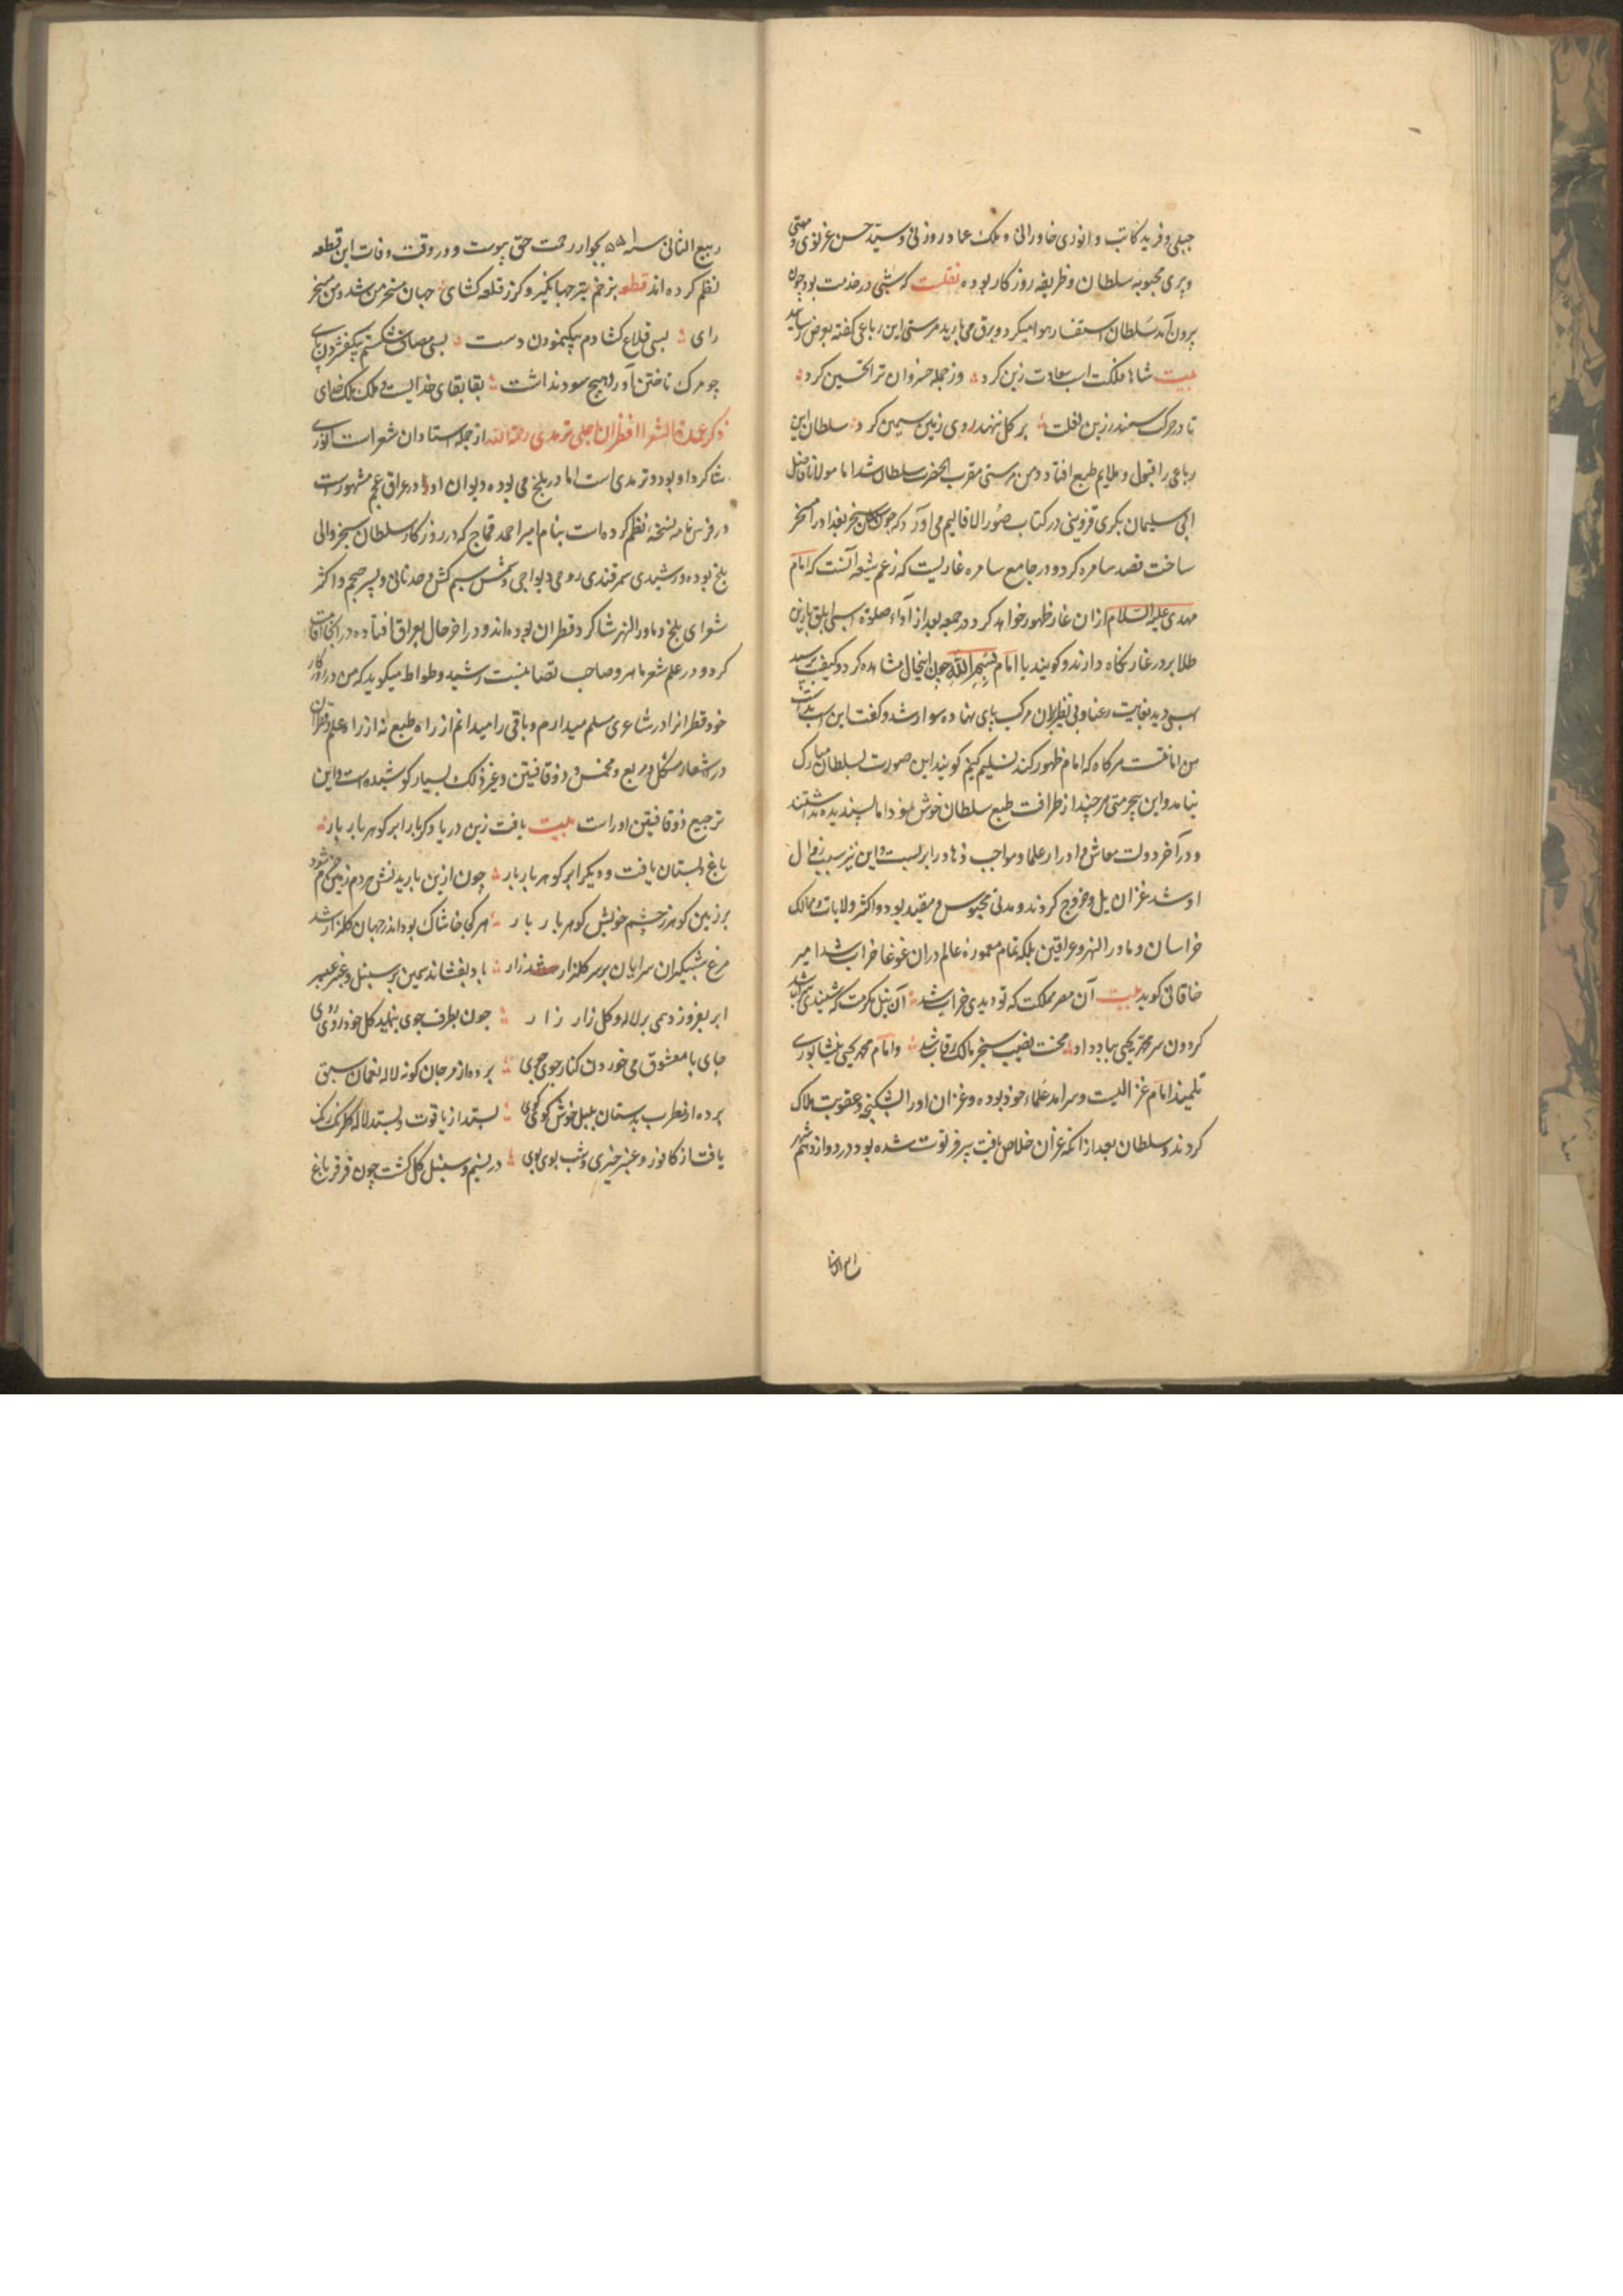 جبلی و فرید کاتب و انوری خاورانی و ملک عماد روزنی و سید حسن غزنوی و مهستی
دبیری محبوبه سلطان و ظریفه روزکار بوده نقلست که شبی در خدمت بود چون
برون آمد سلطان استفسار هوا میکرد و برف می بارید مهستی این رباعی کفته بعرض رسانید
بیت شاها فلکت اسب سعادت زین کرد وز جمله خسروان ترا تحسین کرد
تا در حرکت سمند زرین نعلت بر کل ننهد روی زمین سیمین کرد سلطان این
رباعی را قبول و ملایم طبع افتاد و من بعد مهستی مقرب الحضرت سلطان شد اما مولانا فاضل
ابی سلیمان بکری قزوینی در کتاب صور الاقالیم می آورد که چون سلطان سنجر بغداد را مسخر
ساخت قصد سامره کرد و در جامع سامره غاریست که زعم شیعه آنست که امام
مهدی علیه السلام ازان غار ظهور خواهد کرد و در جمعه بعد از اداء صلوة اسبی ابلق بازین
طلا بر در غار نکاه دارند و کویند یا امام بسم الله چون سلطان اینحال مشاهده کرد و کیفیت پرسید
اسبی دید بغایت رعنا و بی نظیر بران مرکب پای نهاده سوار شد و کفت این اسب بدست
من امانتست هرکاه که امام ظهور کند تسلیم کنم کویند این صورت بسلطان مبارک
نیامد و این بیحرمتی هرچند از ظرافت طبع سلطان خوش نمود اما پسندیده نداشتند
و در آخر دولت معاش و ادرار علما و مواجب زهاد را بر بست و این نیز سبب زوال
او شد غزان بل و خروج کردند و مدتی محبوس و مقید بود و اکثر ولایات و ممالک
خراسان و ماورا النهر و عراقین بلکه تمام معموره عالم دران غوغا خراب شد امیر
خاقانی کوید بیت آن مصر مملکت که تو دیدی خراب شد آن نیل مکرمت که شنیدی سراب شد
کردون سر محمد یحیی بباد داد محنت نصیب سنجر مالک رقاب شد و امام محمد یحیی نیشابوری
تلمیذ امام غزالیست و سرامد علماء خود بوده و غزان او را بشکنجه و عقوبت هلاک
کردند و سلطان بعد از انکه غزان خلاص یافت پیر و فرتوت شده بود در دوازدهم شهر
ربیع الثانی سنه ۵۵۱ بجوار رحمت حق پیوست و در وقت وفات این قطعه
نظم کرده اند قطعه بزخم تیر جهانکیر و کرز قلعه کشای جهان مسخر من شد و من مسخر
رای بسی قلاع کشادم بیکنمودن دست بسی مصاف شکستم بیکفشردن پای
چو مرک تاختن آورد هیچ سود نداشت بقا بقای خدایست و ملک ملک خدای
ذکر عمدة الشعرا قطران اجلی ترمدی رحمة الله از جمله استادان شعراست انوری
شاکرد او بود و ترمدی است اما در بلخ می بوده دیوان او در عراق عجم مشهورست
در فرس نامه نسخه نظم کرده است بنام امیر احمد قماج که در روزکار سلطان سنجر والی
بلخ بوده و رشیدی سمرقندی روحی و یواجی و شمس سیم کش و عدنانی و پسر حجم و اکثر
شعرای بلخ و ماورالنهر شاکرد قطران بوده اند و در اخر حال بعراق افتاده در انجا اقامت
کرد و در علم شعر ماهر و صاحب تصانیفست رشید وطواط میکوید که من در روزکار
خود قطرانرا در شاعری مسلم میدارم و باقی را میدانم از راه طبع نه از راه علم و قطران
در اشعار مشکل و مربع و مخمس و ذو قافیتین و غیر ذلک بسیار کوشیده است و این
ترجیع ذو قافیتین او راست بیت یافت زین دریا دکر بار ابر کوهر بار بار
باغ و بستان یافت و دیکر ابر کوهر بار بار چون ازین بارید نش مردم زمین خرم شود
بر زمین کوهر ز چشم خویش کوهر بار بار هر کجا خاشاک بود اندر جهان کلزار شد
مرغ شبکیران سرایان بر سر کلزار زار باد بفشاند بسمین بر سنبل و عنبر عبیر
ابر بفروزد همی بر لاله و کل زار زار چون بطرف جوی بنماید کل خود روی روی
جای با معشوق می خوردن کنار جوی جوی برده از مرجان کونه لاله نعمان سبق
برده از مطرب بدستان بلبل خوش کوی کوی بستد از یاقوت و بسد لاله کلرنک رنک
یافت از کافور و عنبر خیری و شب بوی بوی در نسیم و سنبل و کل کشت چون فرفر باغ
ربیع الثانی